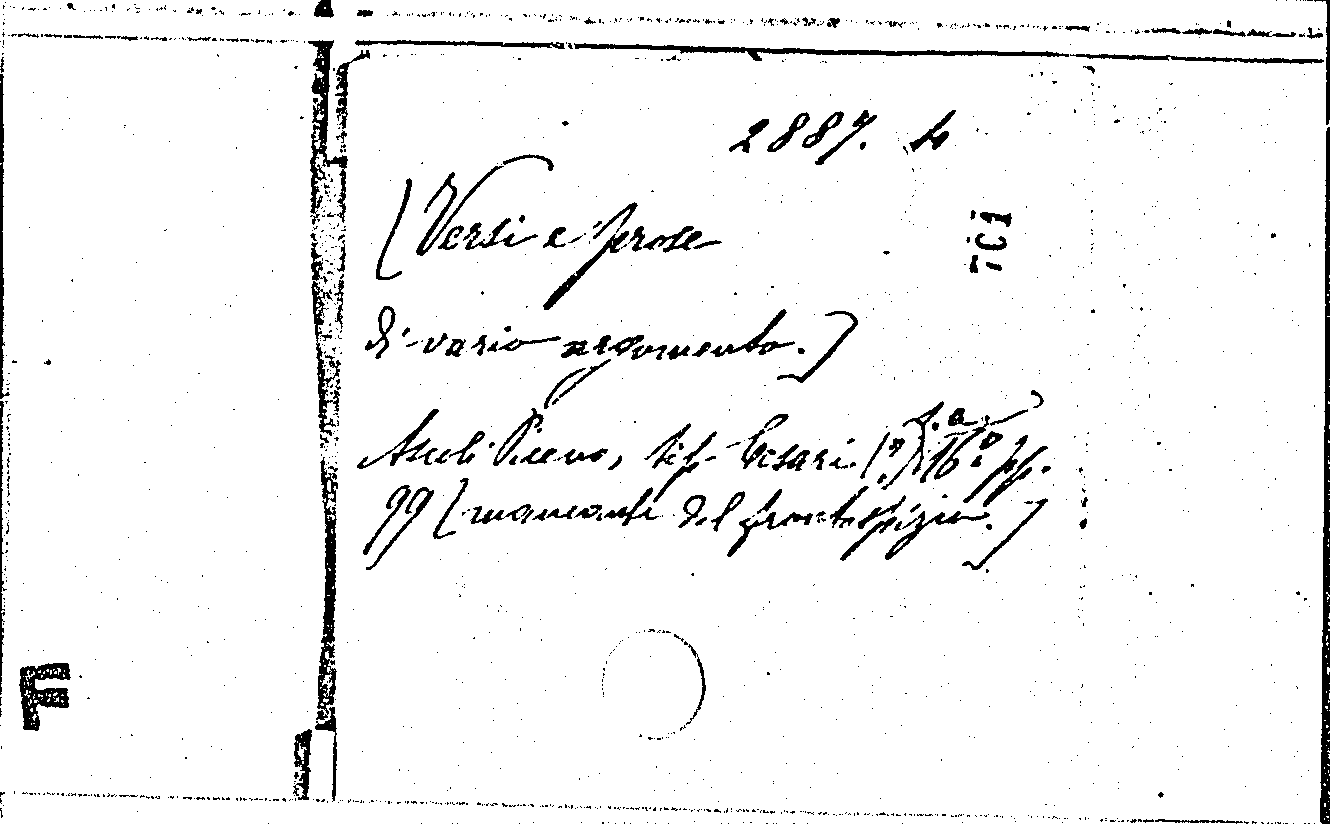 2887. 4
[Versi e prose
di vario argomento.]
Ascoli Piceno, tip. Cesari (?) s. a. 16º pp.
99 [mancante del frontespizio.]
F